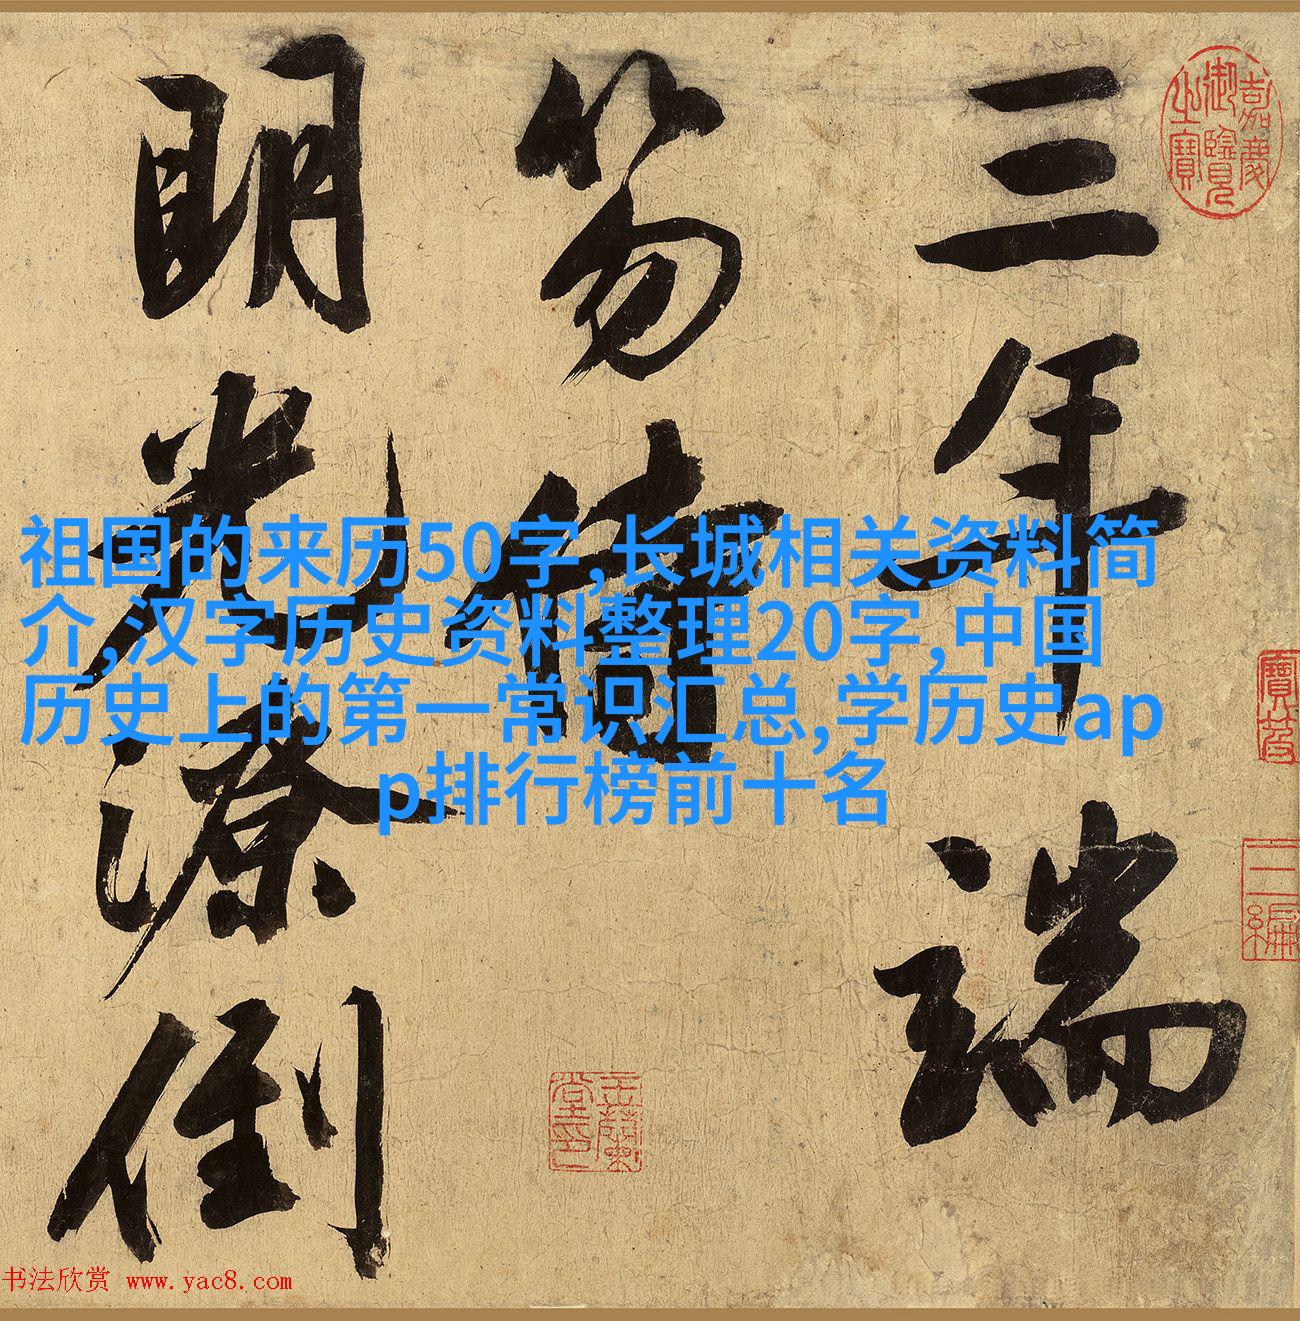 三年端
笏備
明光潦倒
祖国的来历50字,长城相关资料简
介,汉字历史资料整理20字,中国
历史上的第一常识汇总,学历史ap
p排行榜前十名
嘉慶
御覽
之寶
二編
书法欣赏 www.yac8.com